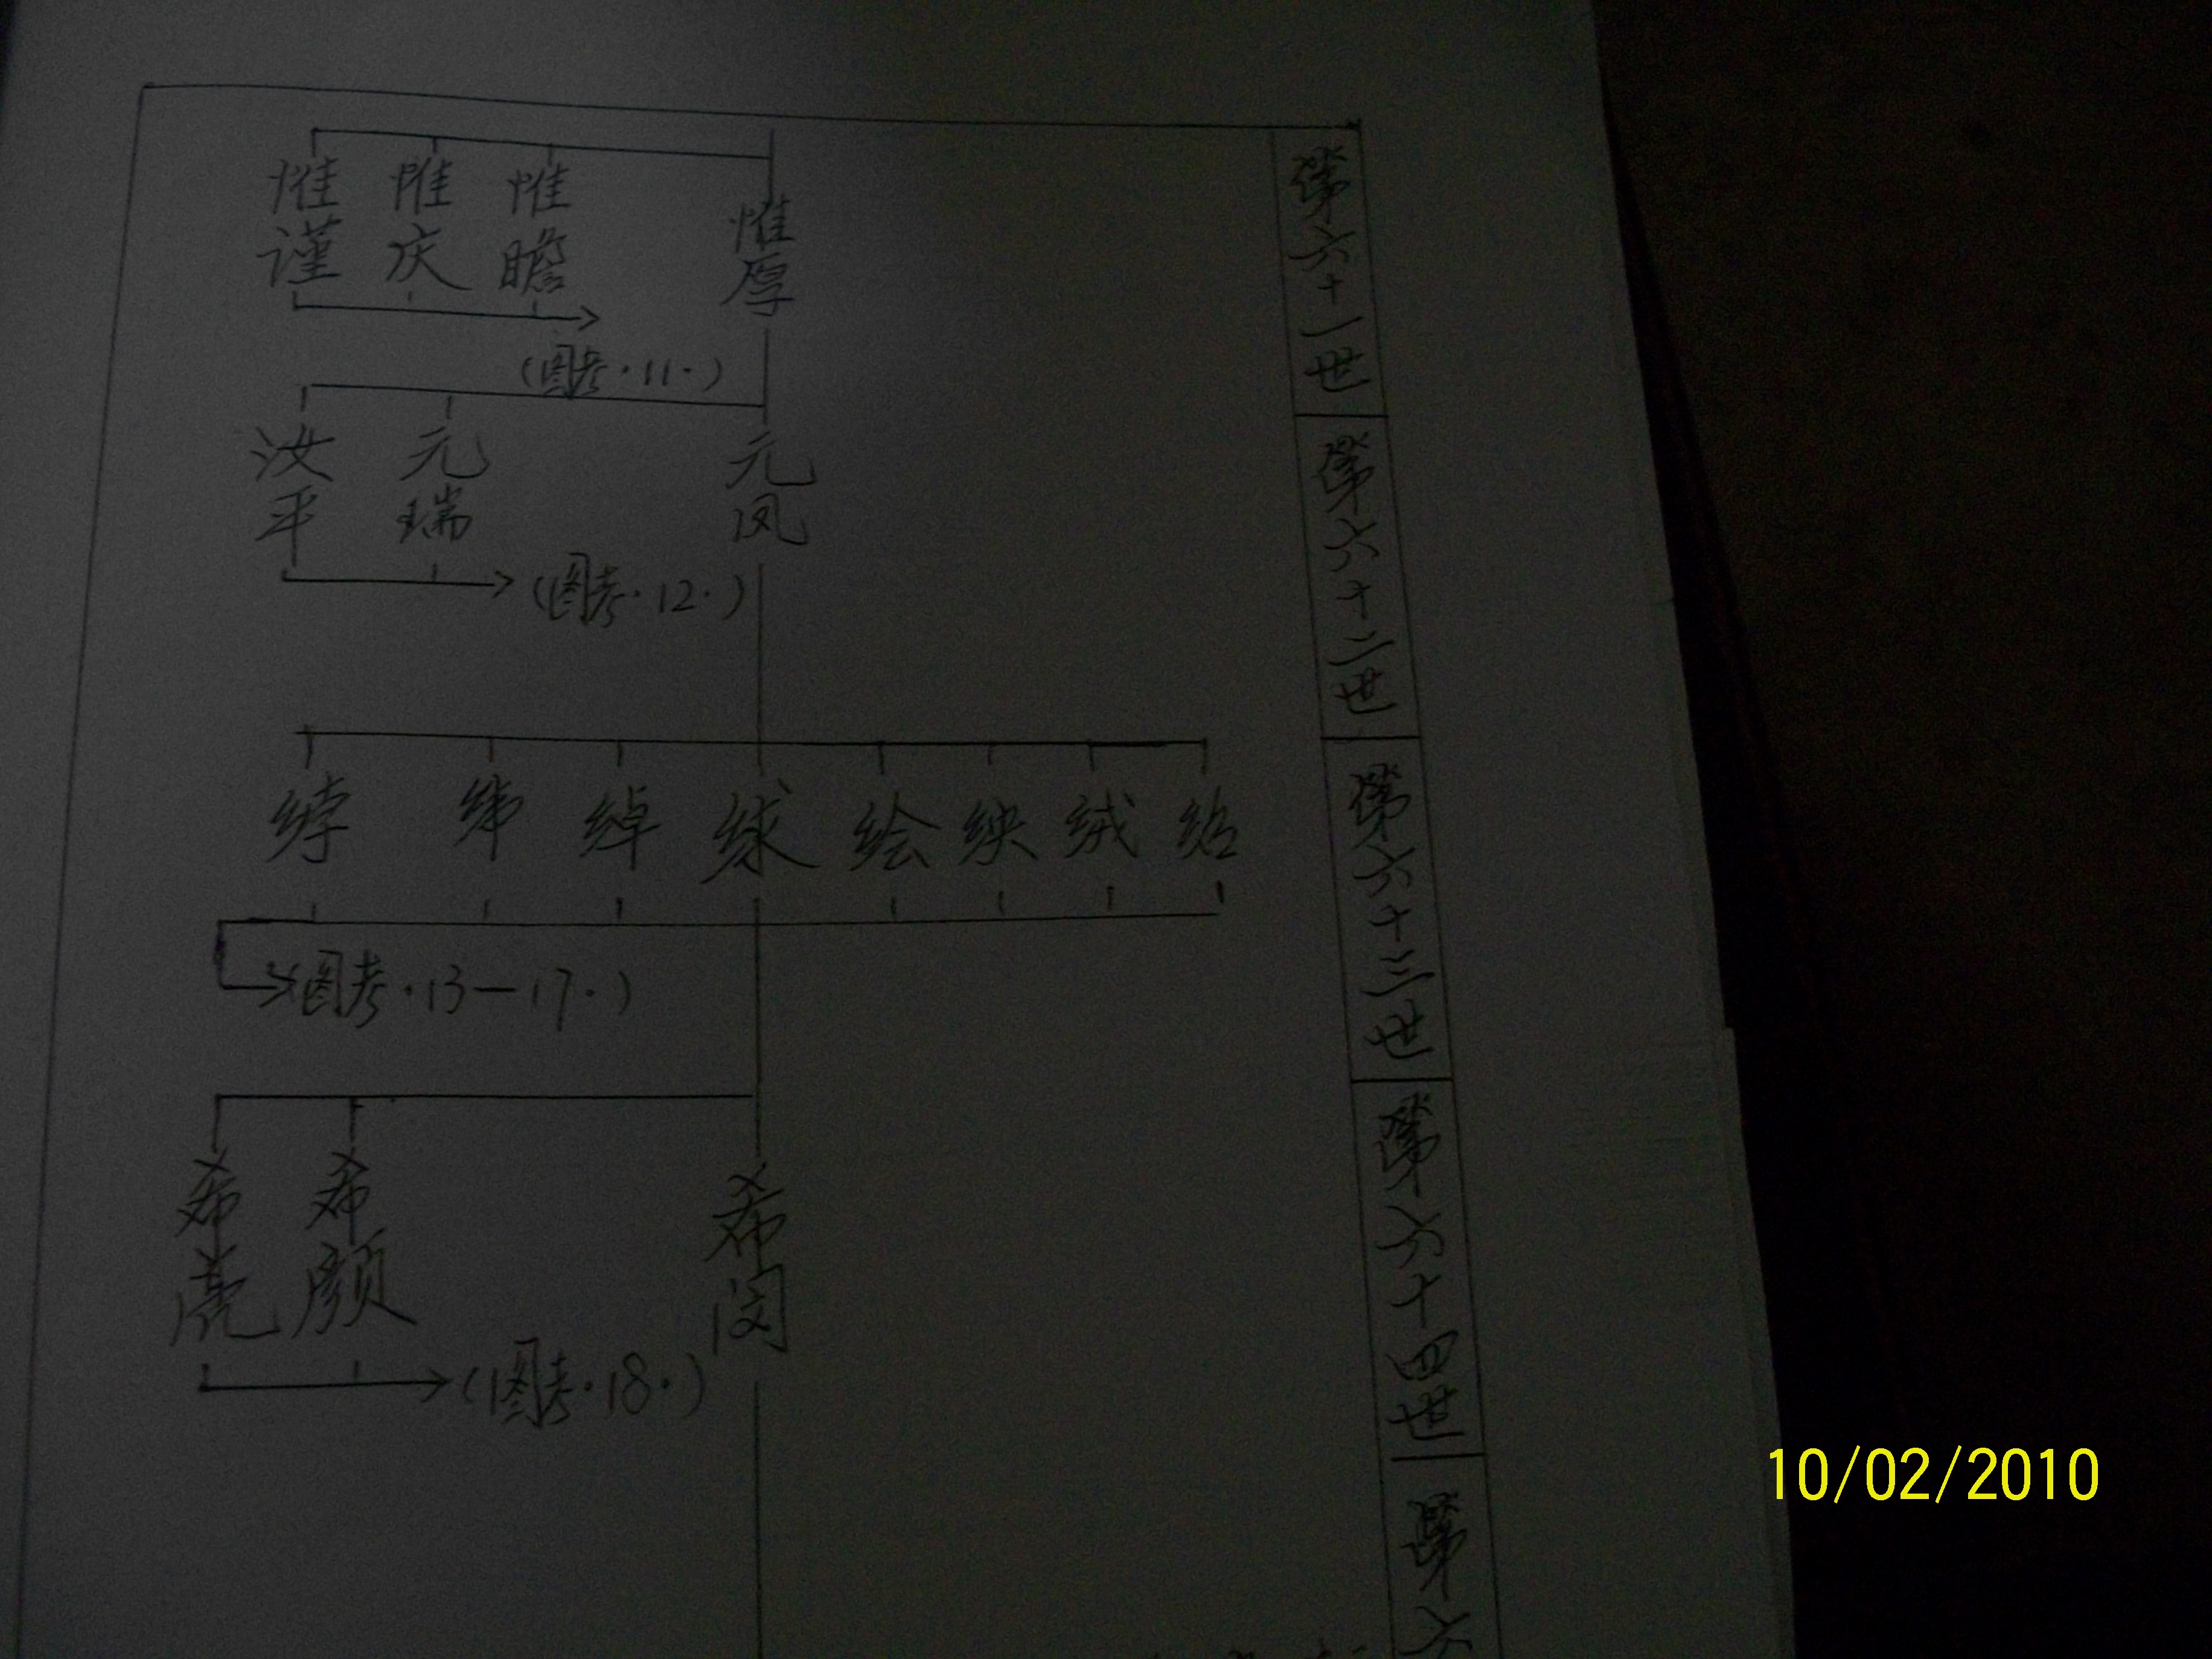 第六十一世
惟厚
惟瞻
惟庆
惟谨
(图考·11·)
第六十二世
元凤
元瑞
汝平
(图考·12·)
第六十三世
绍
绒
绘
绰
纬
(图考·13—17·)
第六十四世
希闵
希颜
希亮
(图考·18·)
第六
10/02/2010